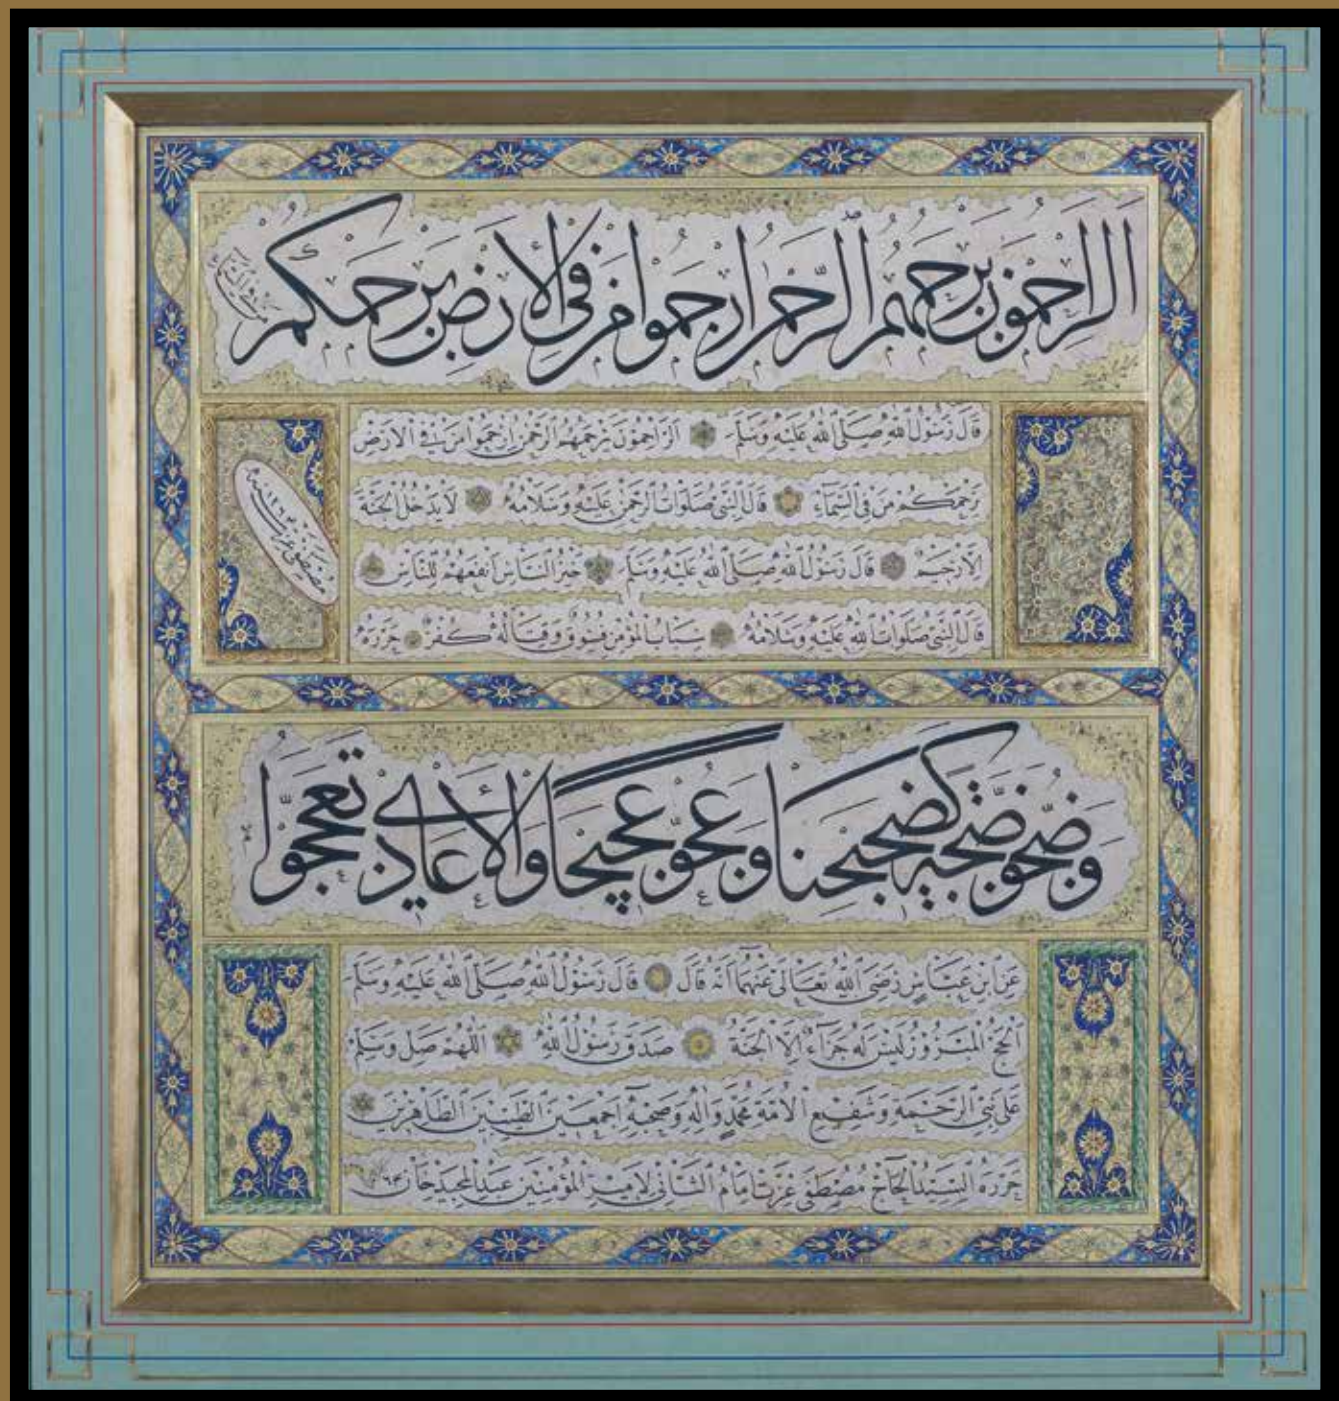 الراحمون يرحمهم الرحمن ارحموا من في الارض يرحمكم
من في السماء
قال رسول الله صلى الله عليه وسلم الراحمون يرحمهم الرحمن ارحموا من في الارض
يرحمكم من في السماء قال النبي صلوات الرحمن عليه وسلامه لا يدخل الجنة
الا رحيم قال رسول الله صلى الله عليه وسلم خير الناس انفعهم للناس
قال النبي صلوات الله عليه وسلامه سباب المؤمن فسوق وقتاله كفر حرره
مصطفى عزت سنه ١٢٦٣
وضحوا ضجة كضجيجنا وعجوا عجيجا والاعادي تعجوا
عن ابن عباس رضى الله تعالى عنهما انه قال قال رسول الله صلى الله عليه وسلم
الحج المبرور ليس له جزاء الا الجنة صدق رسول الله اللهم صل وسلم
على نبي الرحمة وشفيع الامة محمد واله وصحبه اجمعين الطيبين الطاهرين
حرره السيد الحاج مصطفى عزت امام الثانى لامير المؤمنين عبد المجيد خان